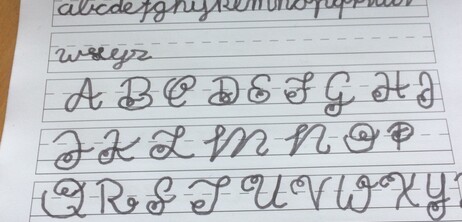 abcdefghijklmnopqr
wxyz
A B C D E F G H I
J K L M N O P
Q R S T U V W X Y